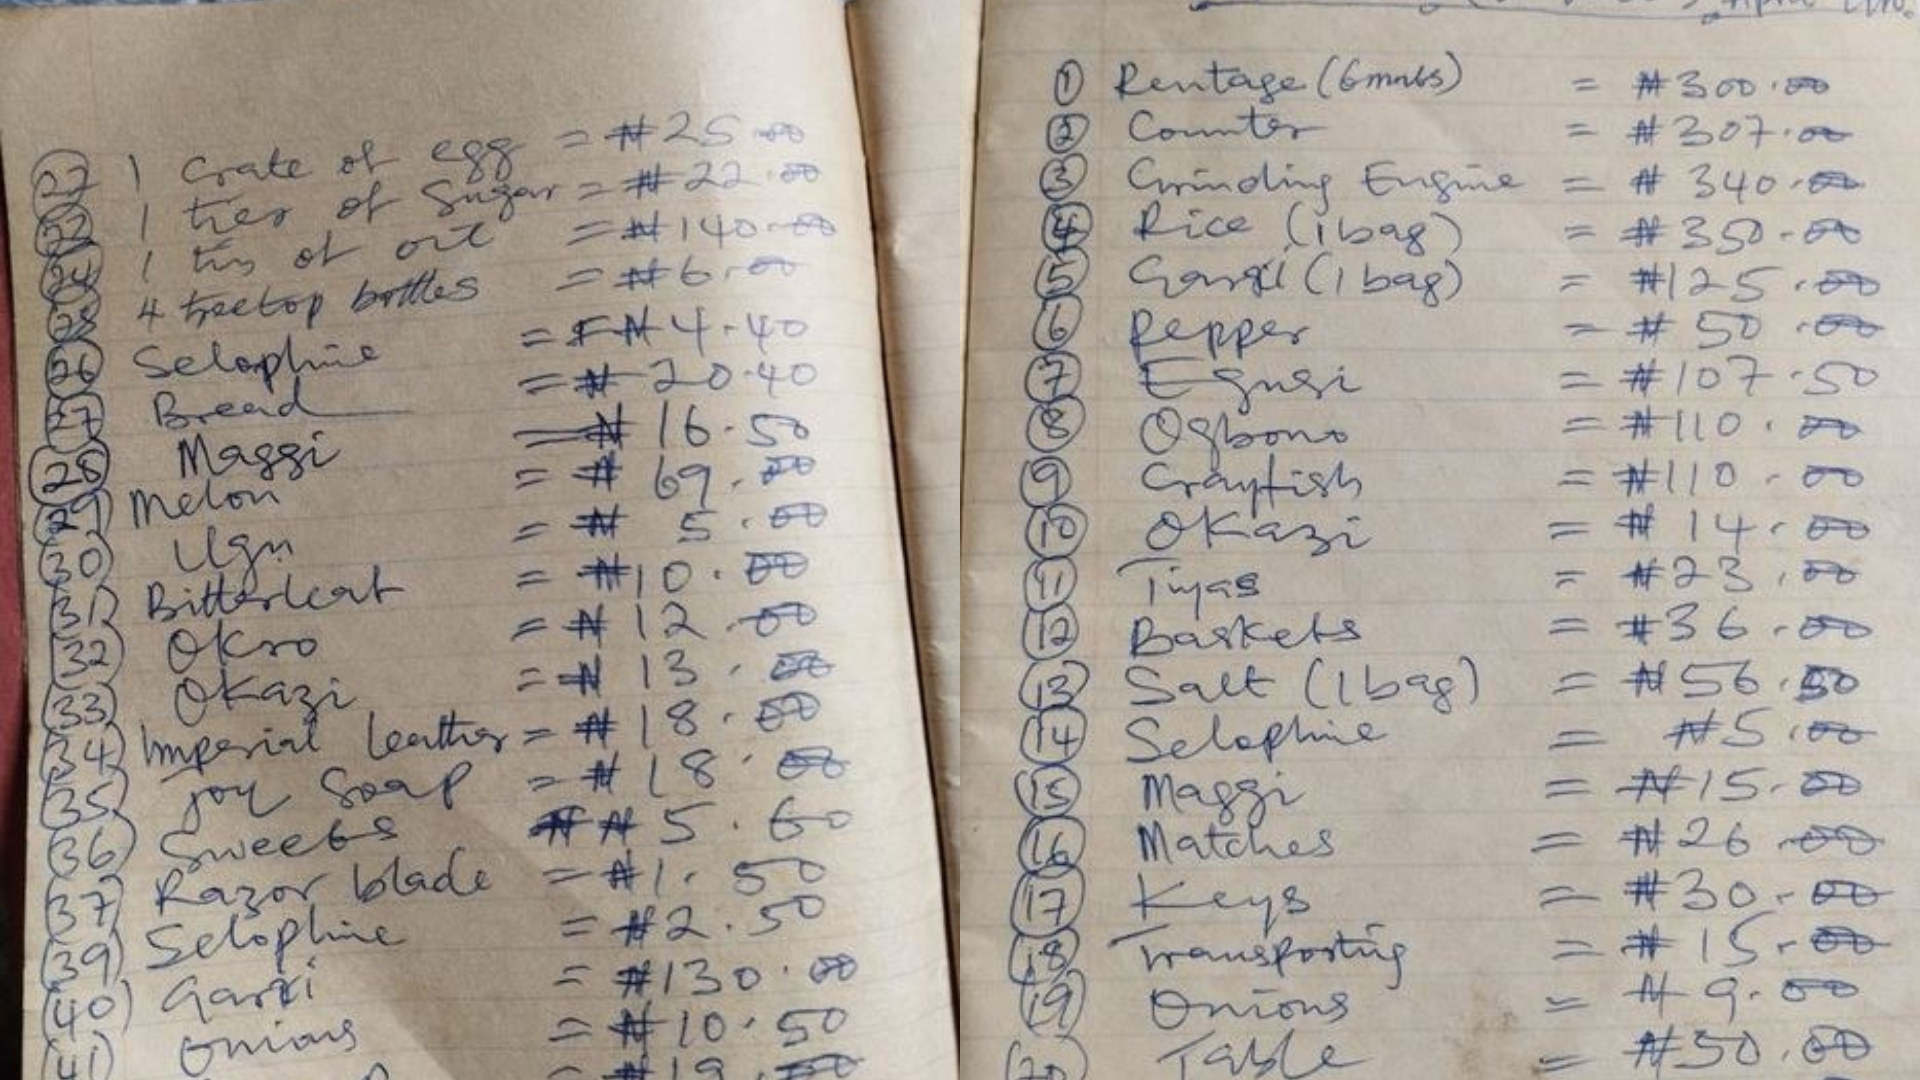 22 1 Crate of egg = ₦25.00
23 1 tier of Sugar = ₦22.00
24 1 tin of oil = ₦140.00
25 4 treetop bottles = ₦6.00
26 Selophine = ₦4.40
27 Bread = ₦20.40
28 Maggi = ₦16.50
29 Melon = ₦69.00
30 Ugu = ₦5.00
31 Bitterleaf = ₦10.00
32 Okro = ₦12.00
33 Okazi = ₦13.00
34 Imperial leather = ₦18.00
35 Joy Soap = ₦18.00
36 Sweets ₦5.60
37 Razor blade = ₦1.50
39 Selophine = ₦2.50
40 Garri = ₦130.00
41 Onions = ₦10.50
= ₦19.00
April
1 Rentage (6mnts) = ₦300.00
2 Counter = ₦307.00
3 Grinding Engine = ₦340.00
4 Rice (1 bag) = ₦350.00
5 Garri (1 bag) = ₦125.00
6 Pepper = ₦50.00
7 Egusi = ₦107.50
8 Ogbono = ₦110.00
9 Crayfish = ₦110.00
10 Okazi = ₦14.00
11 = ₦23.00
12 Baskets = ₦36.00
13 Salt (1 bag) = ₦56.50
14 Selophine = ₦5.00
15 Maggi = ₦15.00
16 Matches = ₦26.00
17 Keys = ₦30.00
18 Transporting = ₦15.00
19 Onions = ₦9.00
20 Table = ₦50.00